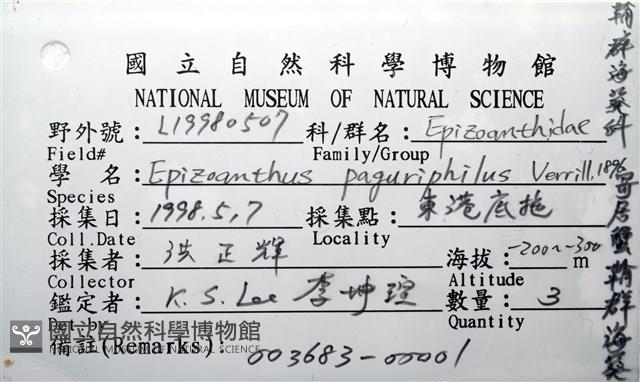 國立自然科學博物館
NATIONAL MUSEUM OF NATURAL SCIENCE
野外號：L19980507 科/群名：Epizoanthidae
Field# Family/Group
學 名：Epizoanthus paguriphilus Verrill, 1896
Species
採集日：1998.5.7 採集點：東港底拖
Coll.Date Locality
採集者：洪正輝 海拔：-200~-300 m
Collector Altitude
鑑定者：K.S. Lee 李坤瑄 數量：3
Det by Quantity
備註(Remarks)：003683-00001
國立自然科學博物館
NATIONAL MUSEUM OF NATURAL SCIENCE
鞘群海葵科 寄居蟹鞘群海葵